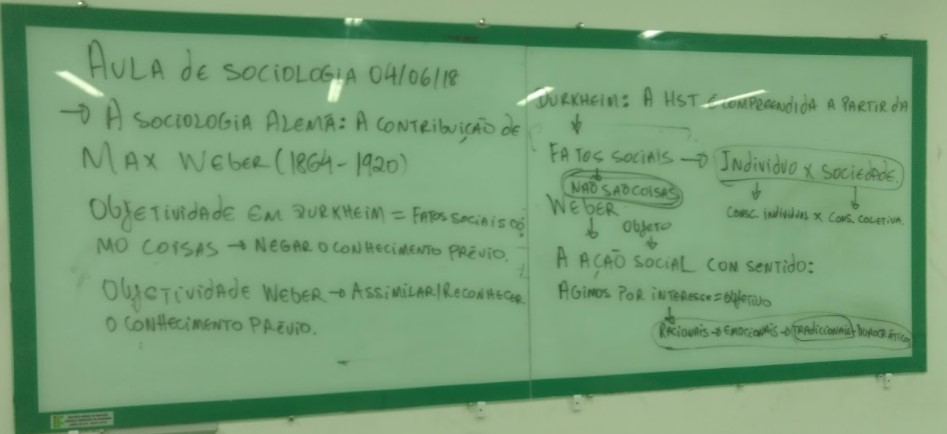 AULA dE SOCIOLOGIA 04/06/18
→ A SOCIOLOGIA ALEMÃ: A CONTRIBUIÇÃO dE
MAX WEBER (1864-1920)
ObjETIVIDADE EM DURKHEIM = FATOS SOCIAIS CO
MO COISAS → NEGAR O CONHECIMENTO PRÉVIO.
ObjETIVIDADE WEBER → ASSIMILAR/RECONHECER
O CONHECIMENTO PRÉVIO.
DURKHEIM: A HST É COMPREENDIDA A PARTIR dA
FATOS SOCIAIS → INDIVÍDUO X SOCIEDADE.
NÃO SÃO COISAS
CONSC. INDIVIDUAL X CONS. COLETIVA.
WEBER
ObjETO
A AÇÃO SOCIAL COM SENTIDO:
AGIMOS POR INTERESSE = ObjETIVO
RACIONAIS → EMOCIONAIS → TRADICIONAIS → BUROCRÁTICOS